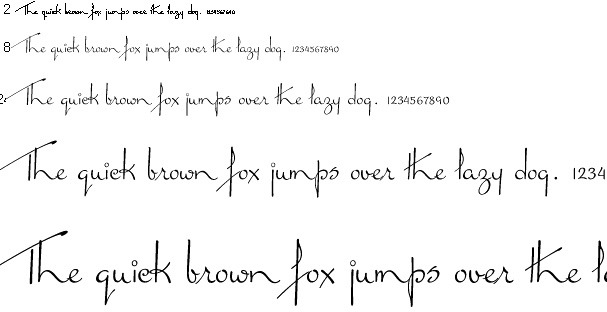 2 The quick brown fox jumps over the lazy dog. 1234567890
8 The quick brown fox jumps over the lazy dog. 1234567890
2 The quick brown fox jumps over the lazy dog. 1234567890
The quick brown fox jumps over the lazy dog. 1234
The quick brown fox jumps over the la